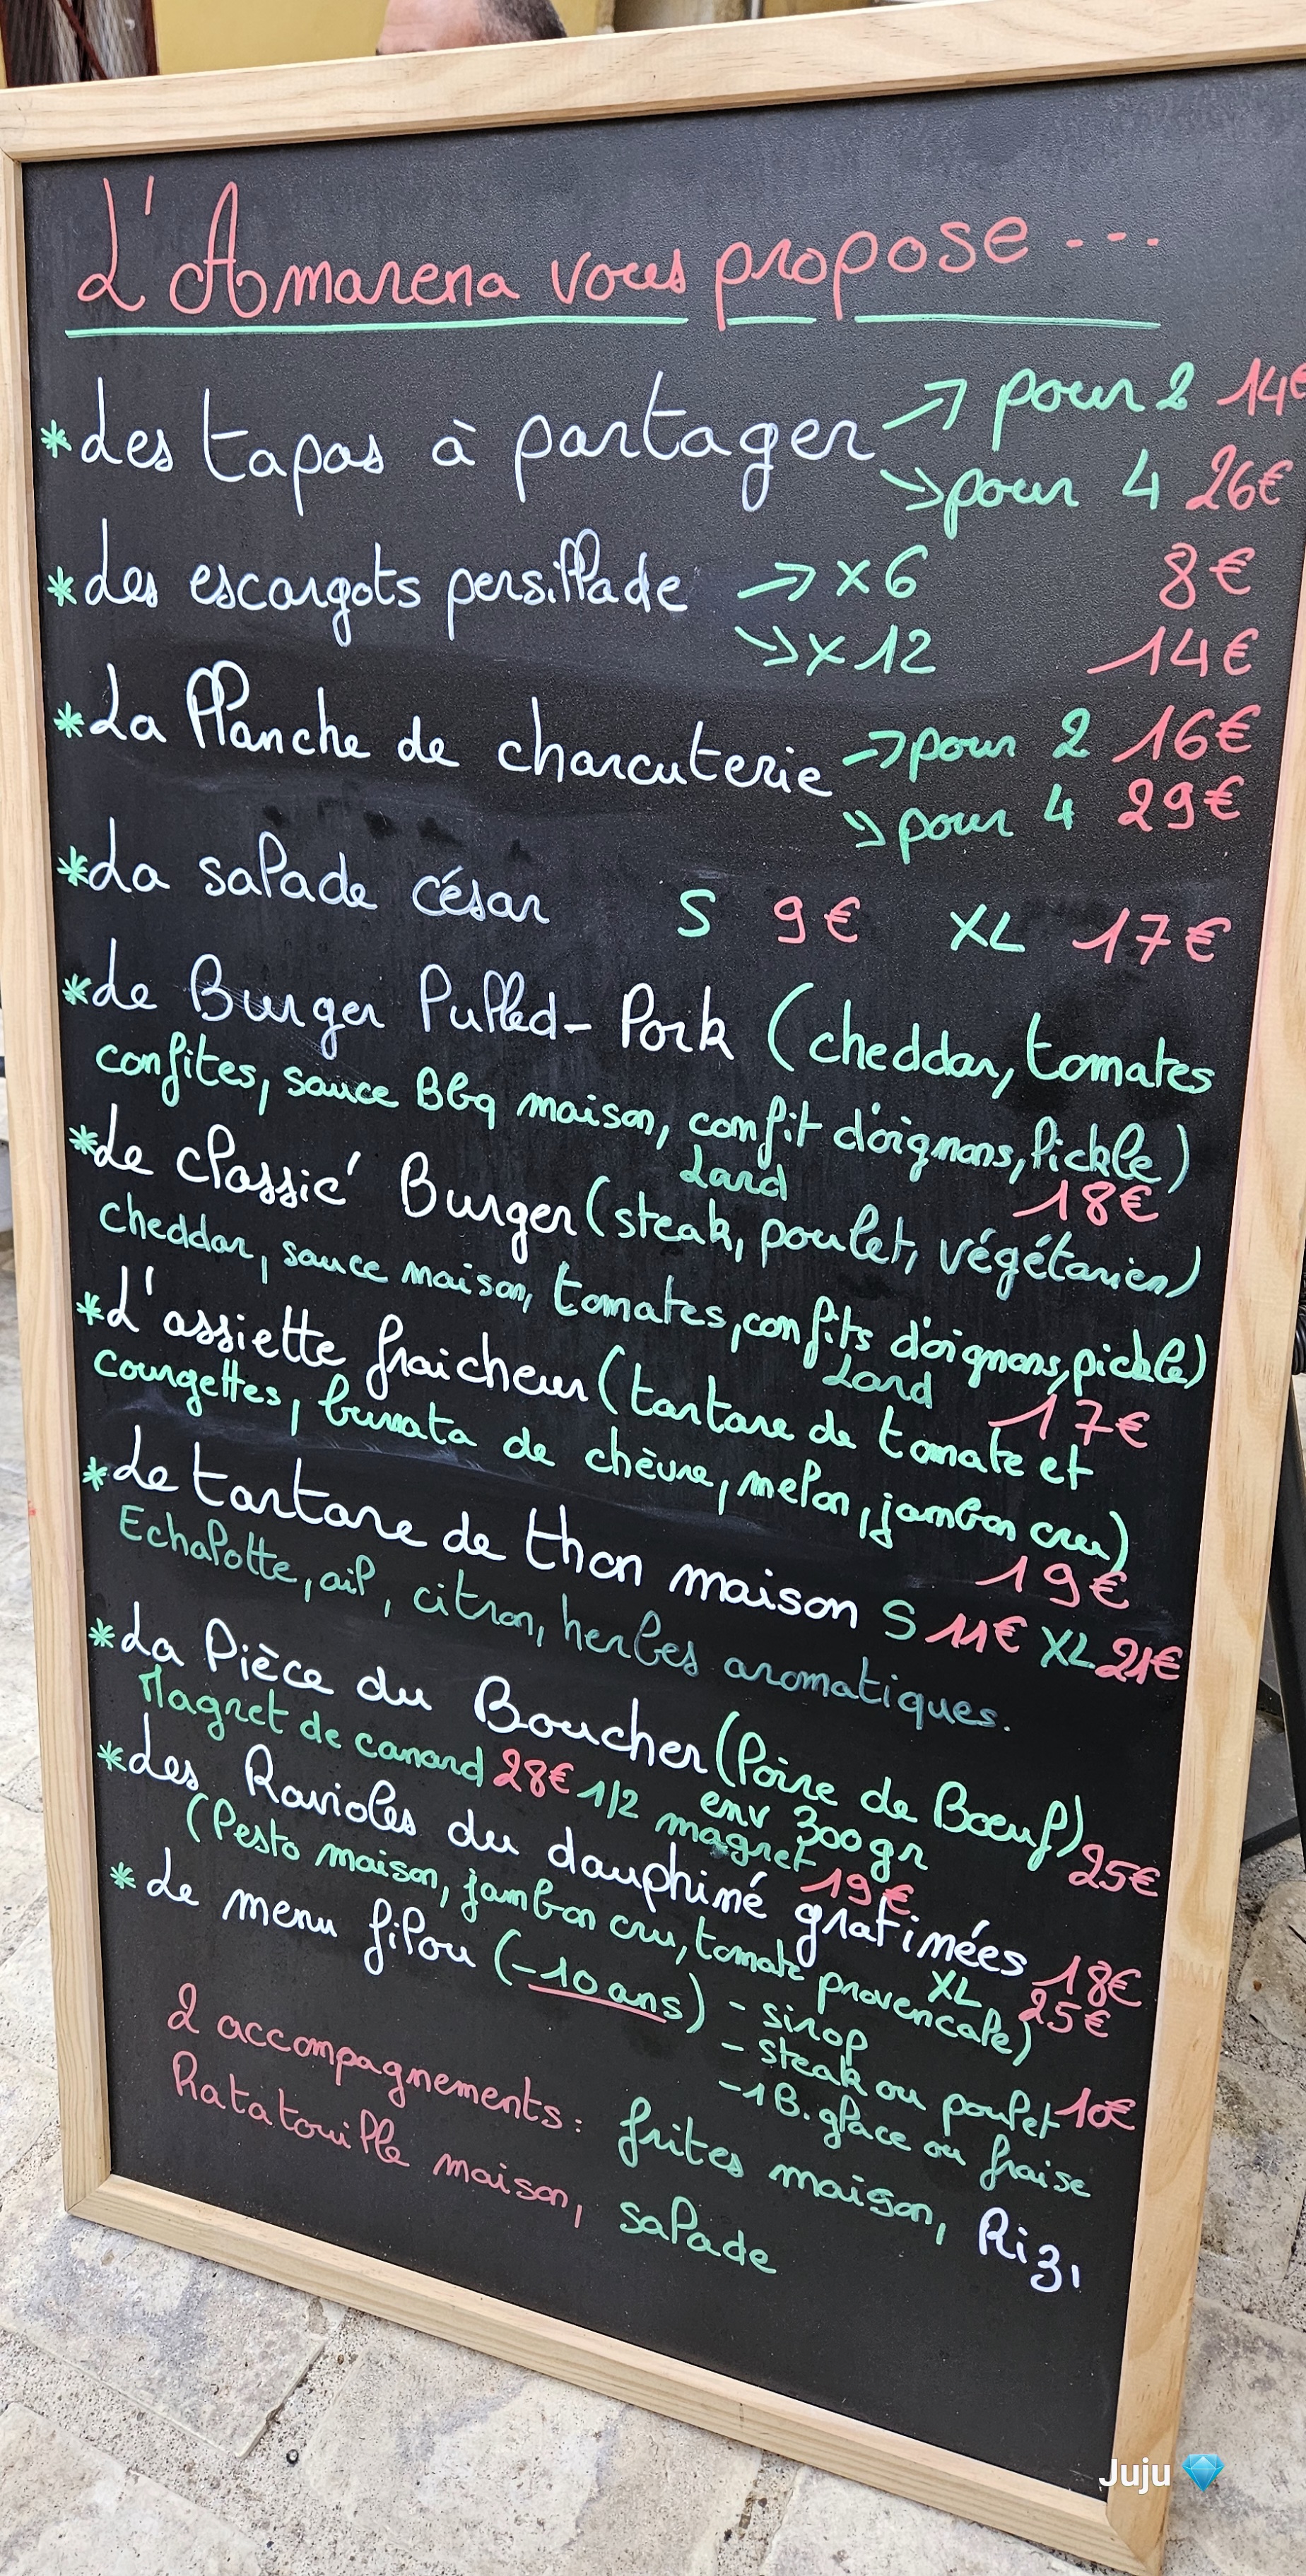 L'Amarena vous propose ---
* Les tapas à partager → pour 2 14€
→ pour 4 26€
* Les escargots persillade → x6 8€
→ x12 14€
* La Planche de charcuterie → pour 2 16€
→ pour 4 29€
* La salade césar S 9€ XL 17€
* Le Burger Pulled-Pork (cheddar, tomates
confites, sauce Bbq maison, confit d'oignons, Pickle)
Lard 18€
* Le classic' Burger (steak, poulet, végétarien)
cheddar, sauce maison, tomates, confits d'oignons, pickle)
Lard 17€
* L'assiette fraicheur (tartare de tomate et
courgettes, burrata de chèvre, melon, jambon cru)
19€
* Le tartare de thon maison S 11€ XL 21€
Echalotte, ail, citron, herbes aromatiques.
* La Pièce du Boucher (Poire de Bœuf)
env 300gr 25€
Magret de canard 28€ 1/2 magret 19€
* Les Ravioles du dauphiné gratinées 18€
XL 25€
(Pesto maison, jambon cru, tomate provencale)
* Le menu filou (-10 ans) - sirop
- steak ou poulet 10€
- 1 B. glace ou fraise
2 accompagnements : frites maison, Riz,
Ratatouille maison, salade
Juju 💎